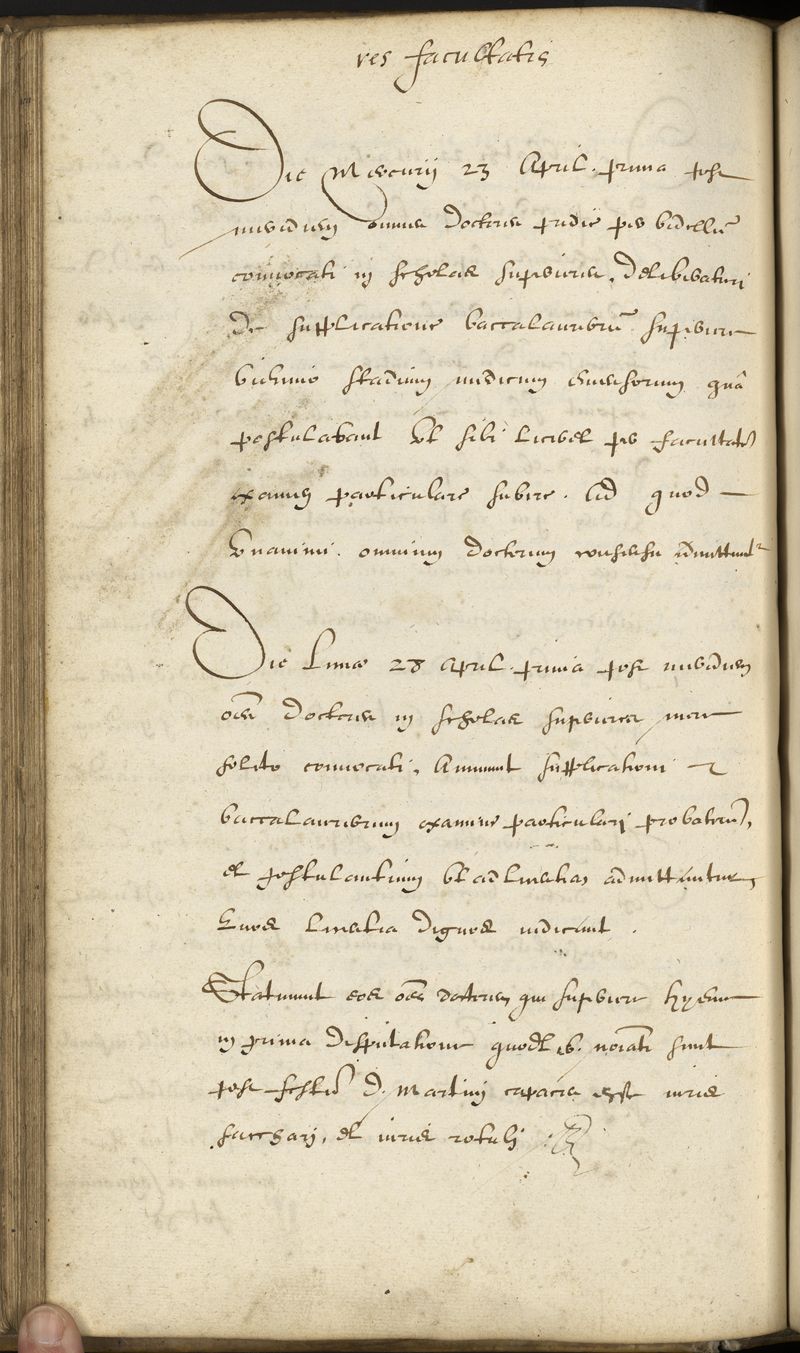 res facultatis
Die Mercurij 23 April. prima post
meridiem omnes doctores pridie per bidellū
convocati in scholas superiores, deliberaturi
de supplicatione baccalaureorū superiore
biennio stadium medicum emensorum quā
postulabant ut sibi liceret per facultatē
examen particulare subire. Ad quod
unanimi omnium doctorum consensu admittunt
Die Lunae 28 April. prima post meridiem
oēs doctores in scholas superiores more
solito convocati, Annuunt supplicationi
baccalaureorum examine particulari probatorū,
et postulantium ut ad licentias admittantur,
Quos licentia dignos iudicant.
Statuunt eos oēs doctores, qui superiore hyeme
in prima disputatione quodlib. noīati sunt
post festū D. Martini capaces esse iuris
sacchari, et iuris rotuli